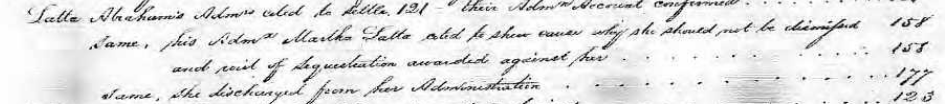 Latta Abraham's Adm.rs cited to settle 121 - their Adm.n Account confirmed . . . .
Same, his Adm.x Martha Latta cited to shew cause why she should not be dismissed 158
and writ of sequestration awarded against her . . . . . . . . . . 158
Same, she discharged from her Administration . . . . . . . . . . . 177
123